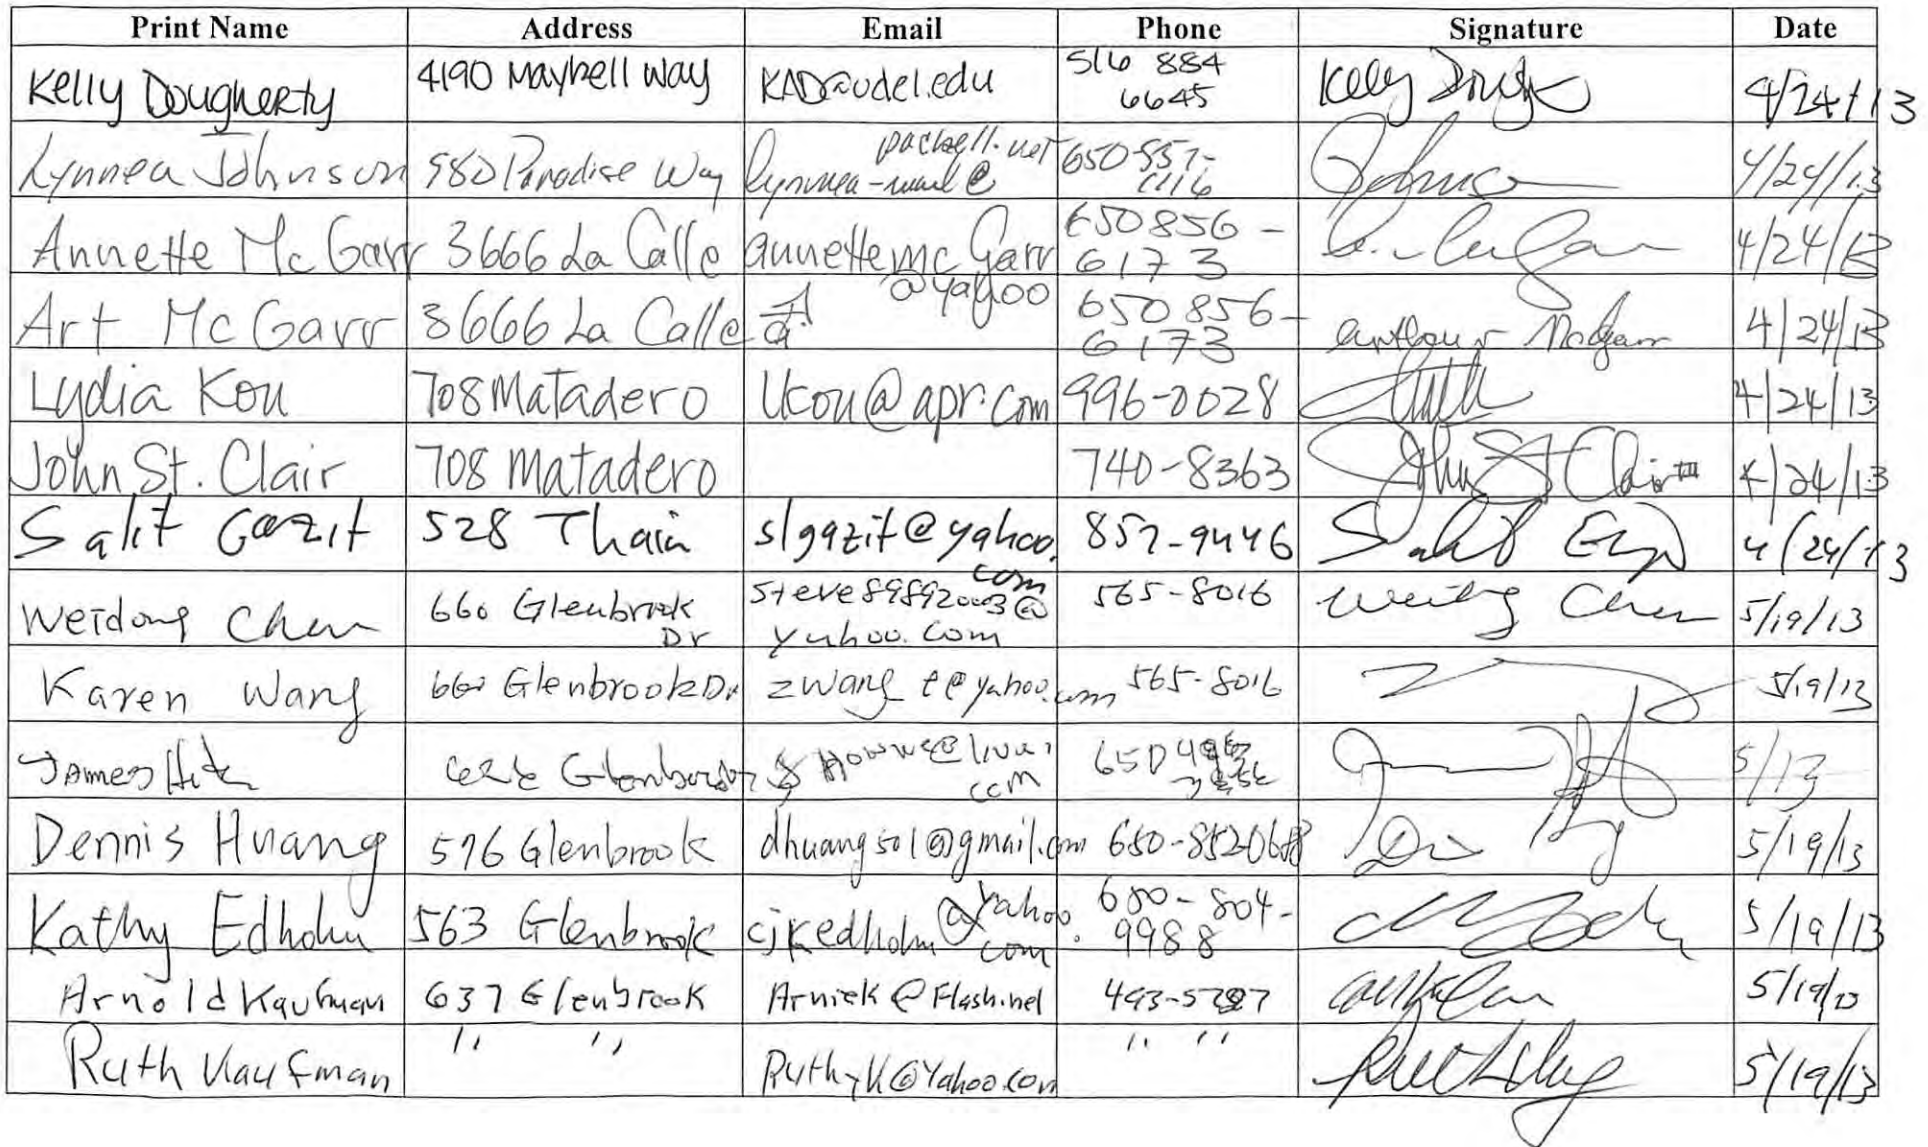 Print Name Address Email Phone Signature Date
Kelly Dougherty 4190 Maybell Way KAD@udel.edu 516 884 6645 Kelly 4/24/13
Lynnea Johnson 980 Paradise Way lynnea-mail@ pacbell.net 650 857-1116 Johnson 4/24/13
Annette McGarr 3666 La Calle annettemcGarr @yahoo 650 856-6173 4/24/13
Art McGarr 3666 La Calle 650 856-6173 4/24/13
Lydia Kou 708 Matadero lkou@apr.com 996-0028 4/24/13
John St. Clair 708 Matadero 740-8363 John St Clair III 4/24/13
Salit Gazit 528 Thain slgazit@yahoo.com 857-9446 4/24/13
Weidong Chen 660 Glenbrook Dr steve89892003@yahoo.com 565-8016 Chen 5/19/13
Karen Wang 660 Glenbrook Dr zwang_te@yahoo.com 565-8016 5/19/13
James 650 5/13
Dennis Huang 576 Glenbrook dhuang501@gmail.com 650-852-0688 5/19/13
Kathy Edholm 563 Glenbrook cjkedholm@yahoo.com 650-804-9988 5/19/13
Arnold Kaufman 637 Glenbrook ArnieK@Flash.net 493-5787 5/19/13
Ruth Kaufman " " RuthyK@Yahoo.com " " 5/19/13